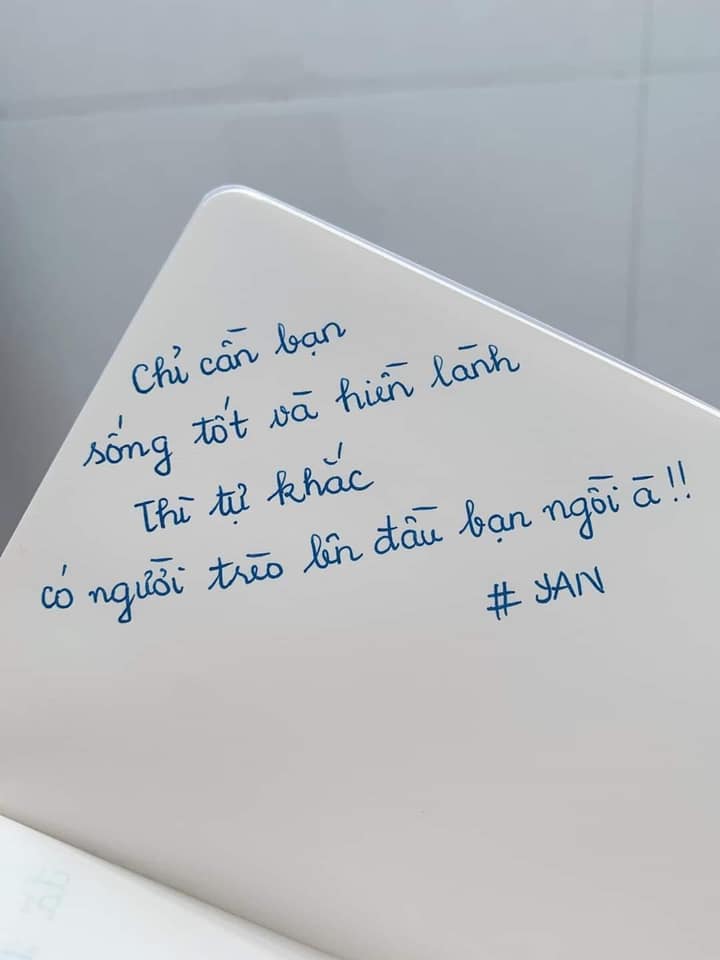 Chỉ cần bạn
sống tốt và hiền lành
Thì tự khắc
có người trèo lên đầu bạn ngồi à!!
# YAN